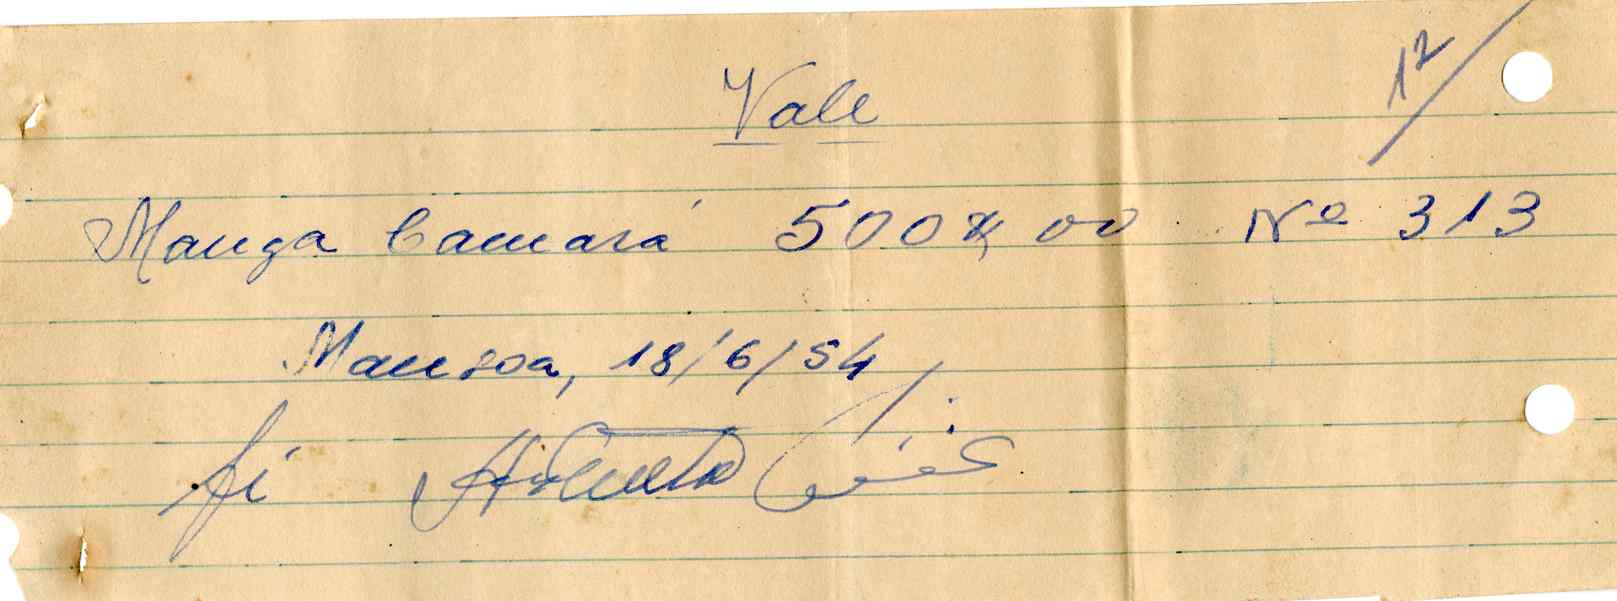 12/
Vale
Manga Camará 500$00 Nº 313
Mansoa, 18/6/54